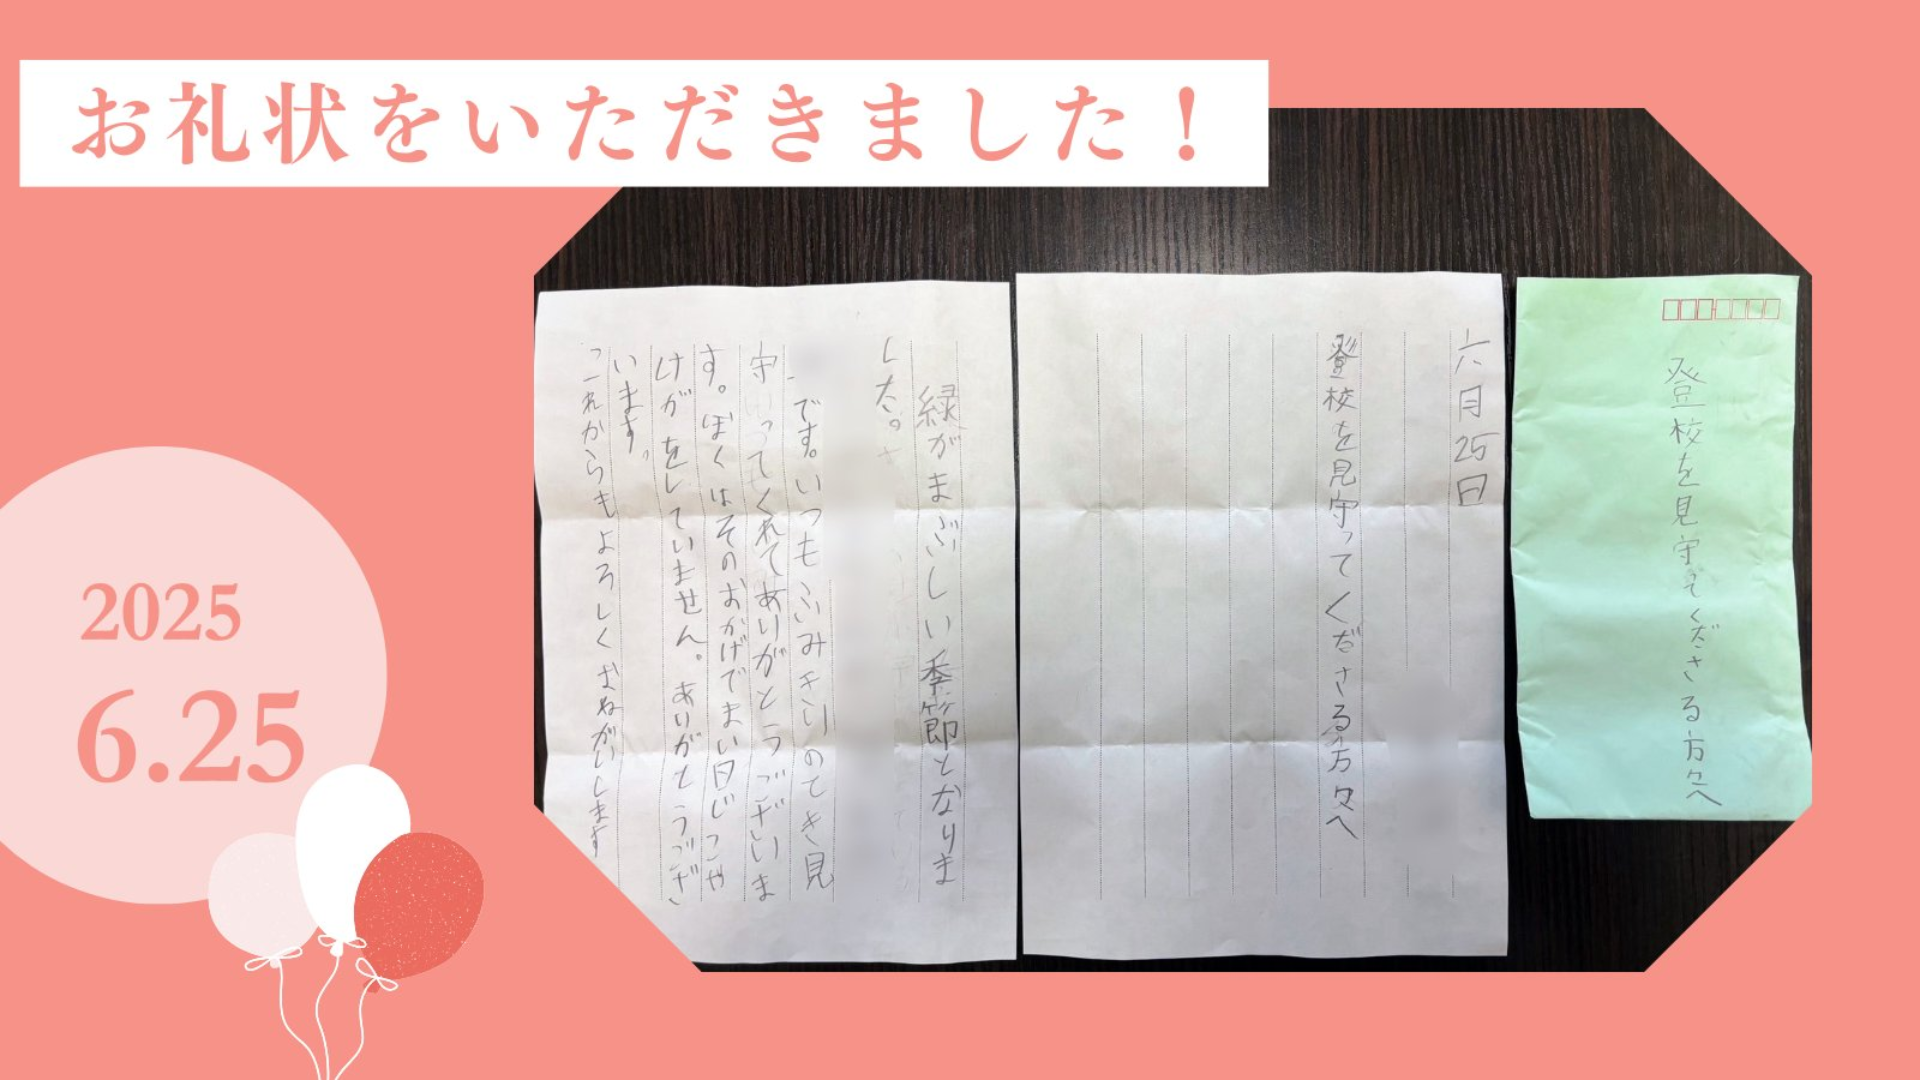 お礼状をいただきました！
2025
6.25
登校を見守てくださる方々へ
六月25日
登校を見守ってくださる方々へ
緑がまぶしい季節となりま
した。
です。いつもふみきりのてき見
守ってくれてありがとうございま
す。ぼくはそのおかげでまい日じこや
けがをしていません。ありがとうござ
います。
これからもよろしくおねがいします